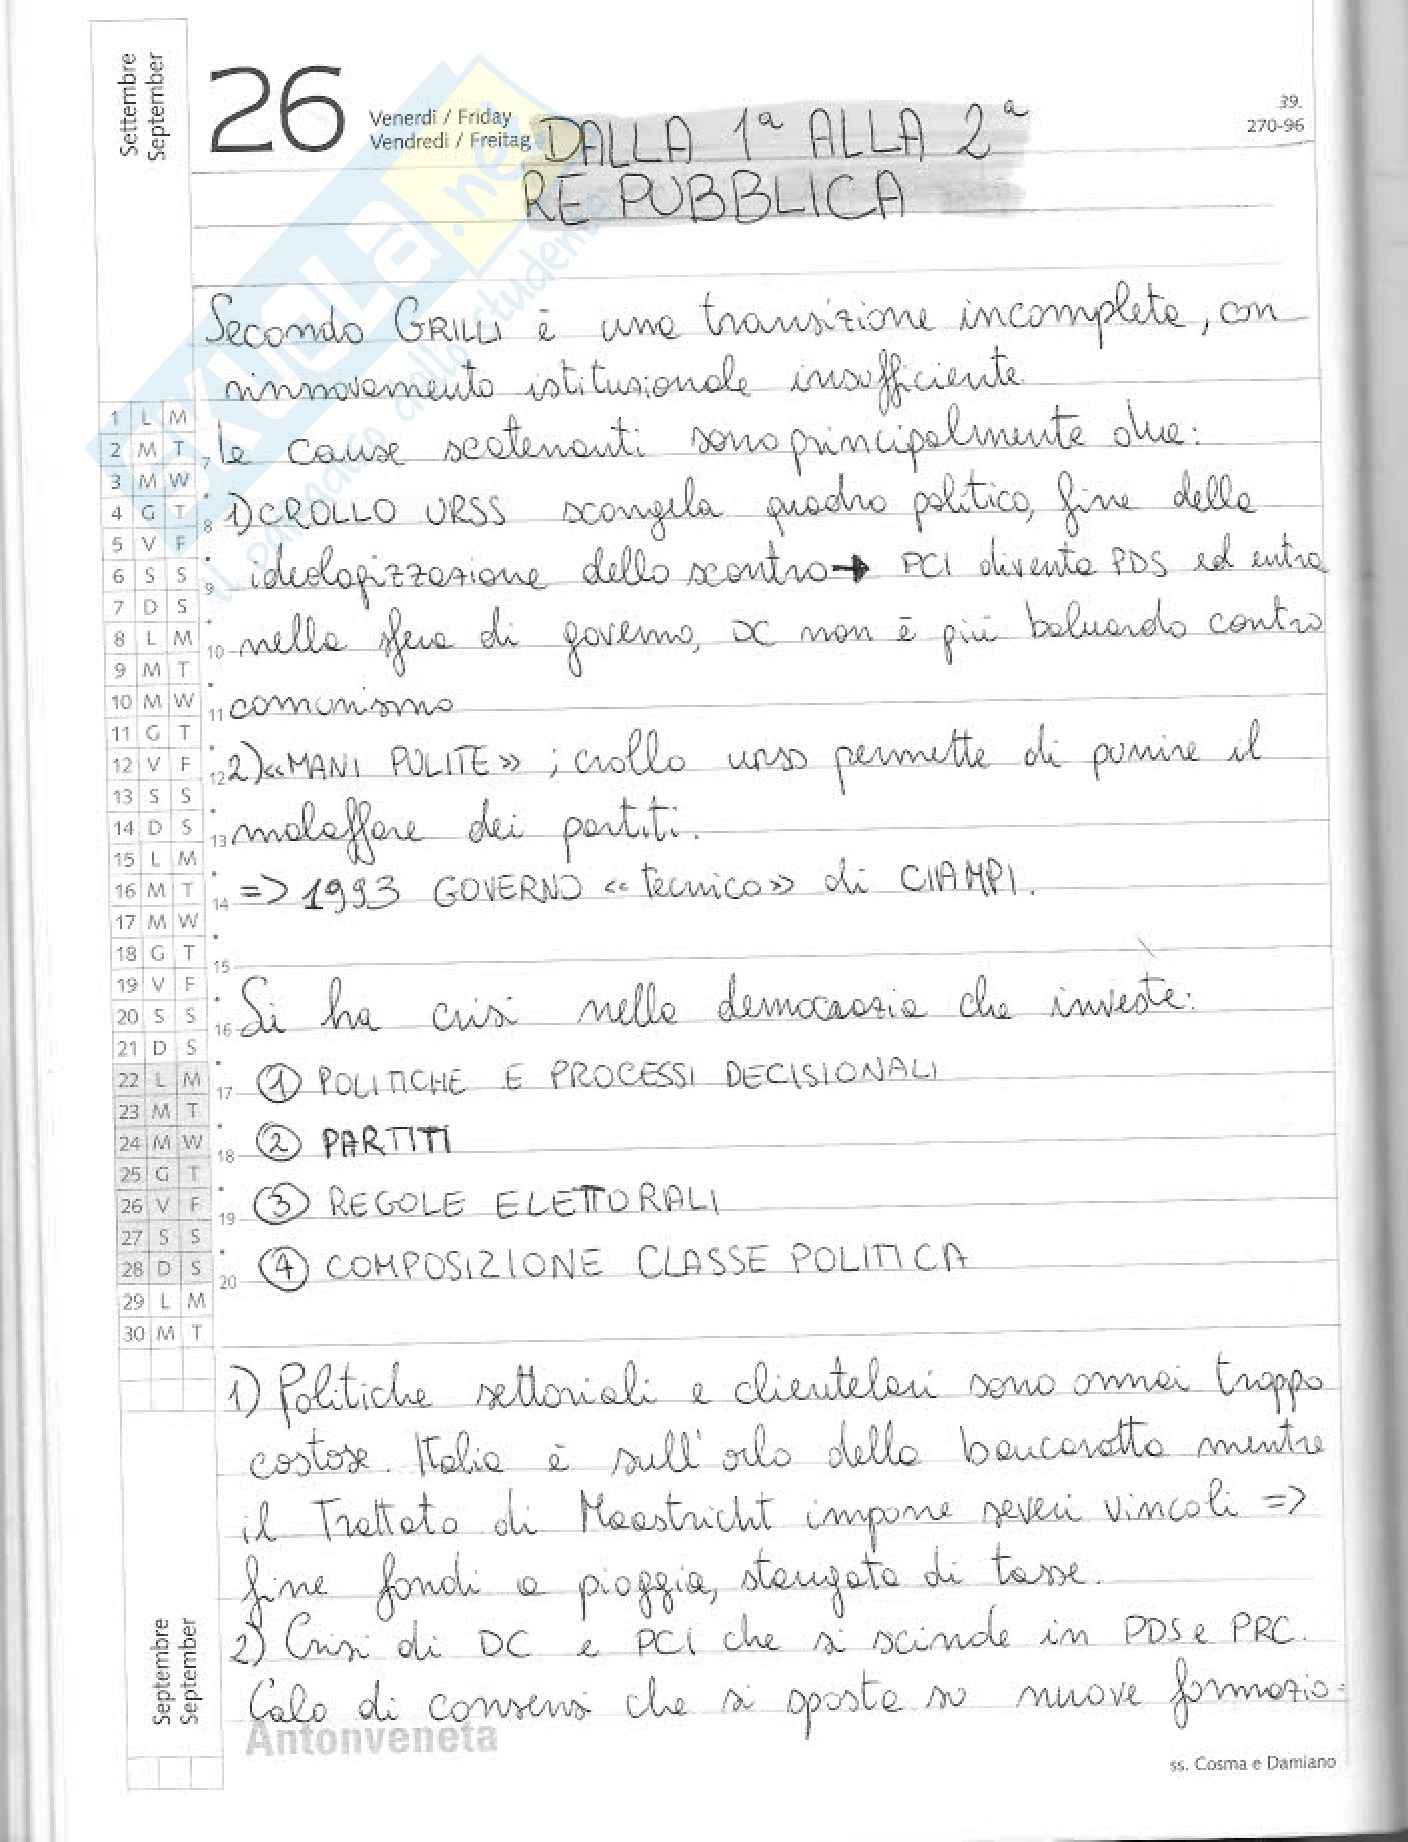 Settembre
September
26
Venerdì / Friday
Vendredi / Freitag
39.
270-96
DALLA 1ª ALLA 2ª
REPUBBLICA
SKUOLA.net
il paradiso dello studente
Secondo GRILLI è una transizione incompleta, con
rinnovamento istituzionale insufficiente.
Le cause scatenanti sono principalmente due:
1) CROLLO URSS scongela quadro politico, fine della
ideologizzazione dello scontro → PCI diventa PDS ed entra
nella sfera di governo, DC non è più baluardo contro
comunismo
2) «MANI PULITE» ; crollo urss permette di punire il
malaffare dei partiti.
=> 1993 GOVERNO «tecnico» di CIAMPI.
Si ha crisi nella democrazia che investe:
① POLITICHE E PROCESSI DECISIONALI
② PARTITI
③ REGOLE ELETTORALI
④ COMPOSIZIONE CLASSE POLITICA
1) Politiche settoriali e clientelari sono ormai troppo
costose. Italia è sull'orlo della bancarotta mentre
il Trattato di Maastricht impone severi vincoli =>
fine fondi a pioggia, stangata di tasse.
2) Crisi di DC e PCI che si scinde in PDS e PRC.
Calo di consensi che si sposta su nuove formazio-
1 L M
2 M T
3 M W
4 G T
5 V F
6 S S
7 D S
8 L M
9 M T
10 M W
11 G T
12 V F
13 S S
14 D S
15 L M
16 M T
17 M W
18 G T
19 V F
20 S S
21 D S
22 L M
23 M T
24 M W
25 G T
26 V F
27 S S
28 D S
29 L M
30 M T
7
8
9
10
11
12
13
14
15
16
17
18
19
20
Septiembre
September
Antonveneta
ss. Cosma e Damiano